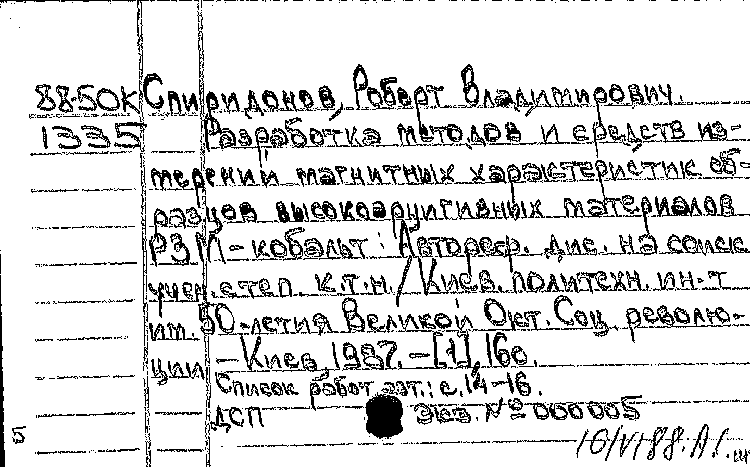 88-50К Спиридонов, Роберт Владимирович.
1335 Разработка методов и средств из-
мерений магнитных характеристик об-
разцов высококоэрцитивных материалов
РЗМ-кобальт: Автореф. дис. на соиск.
учен. степ. к.т.н. / Киев. политехн. ин-т
им. 50-летия Великой Окт. Соц. револю-
ции
-Киев, 1987.-[1], 16с.
Список работ авт.: с. 14-16.
ДСП Экз. № 000005
5
10/VI88. А1.